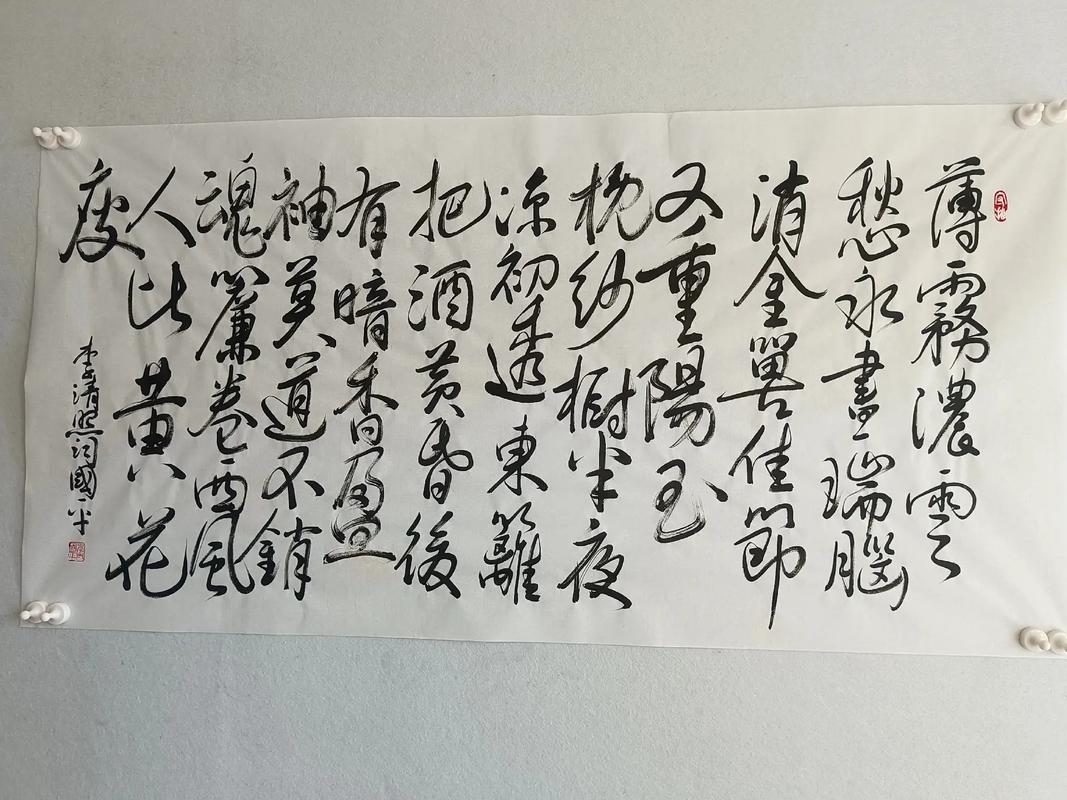 薄霧濃雲
愁永晝瑞腦
消金獸佳節
又重陽玉
枕紗櫥半夜
涼初透東籬
把酒黃昏後
有暗香盈
袖莫道不銷
魂簾卷西風
人比黃花
瘦
李清照詞國平